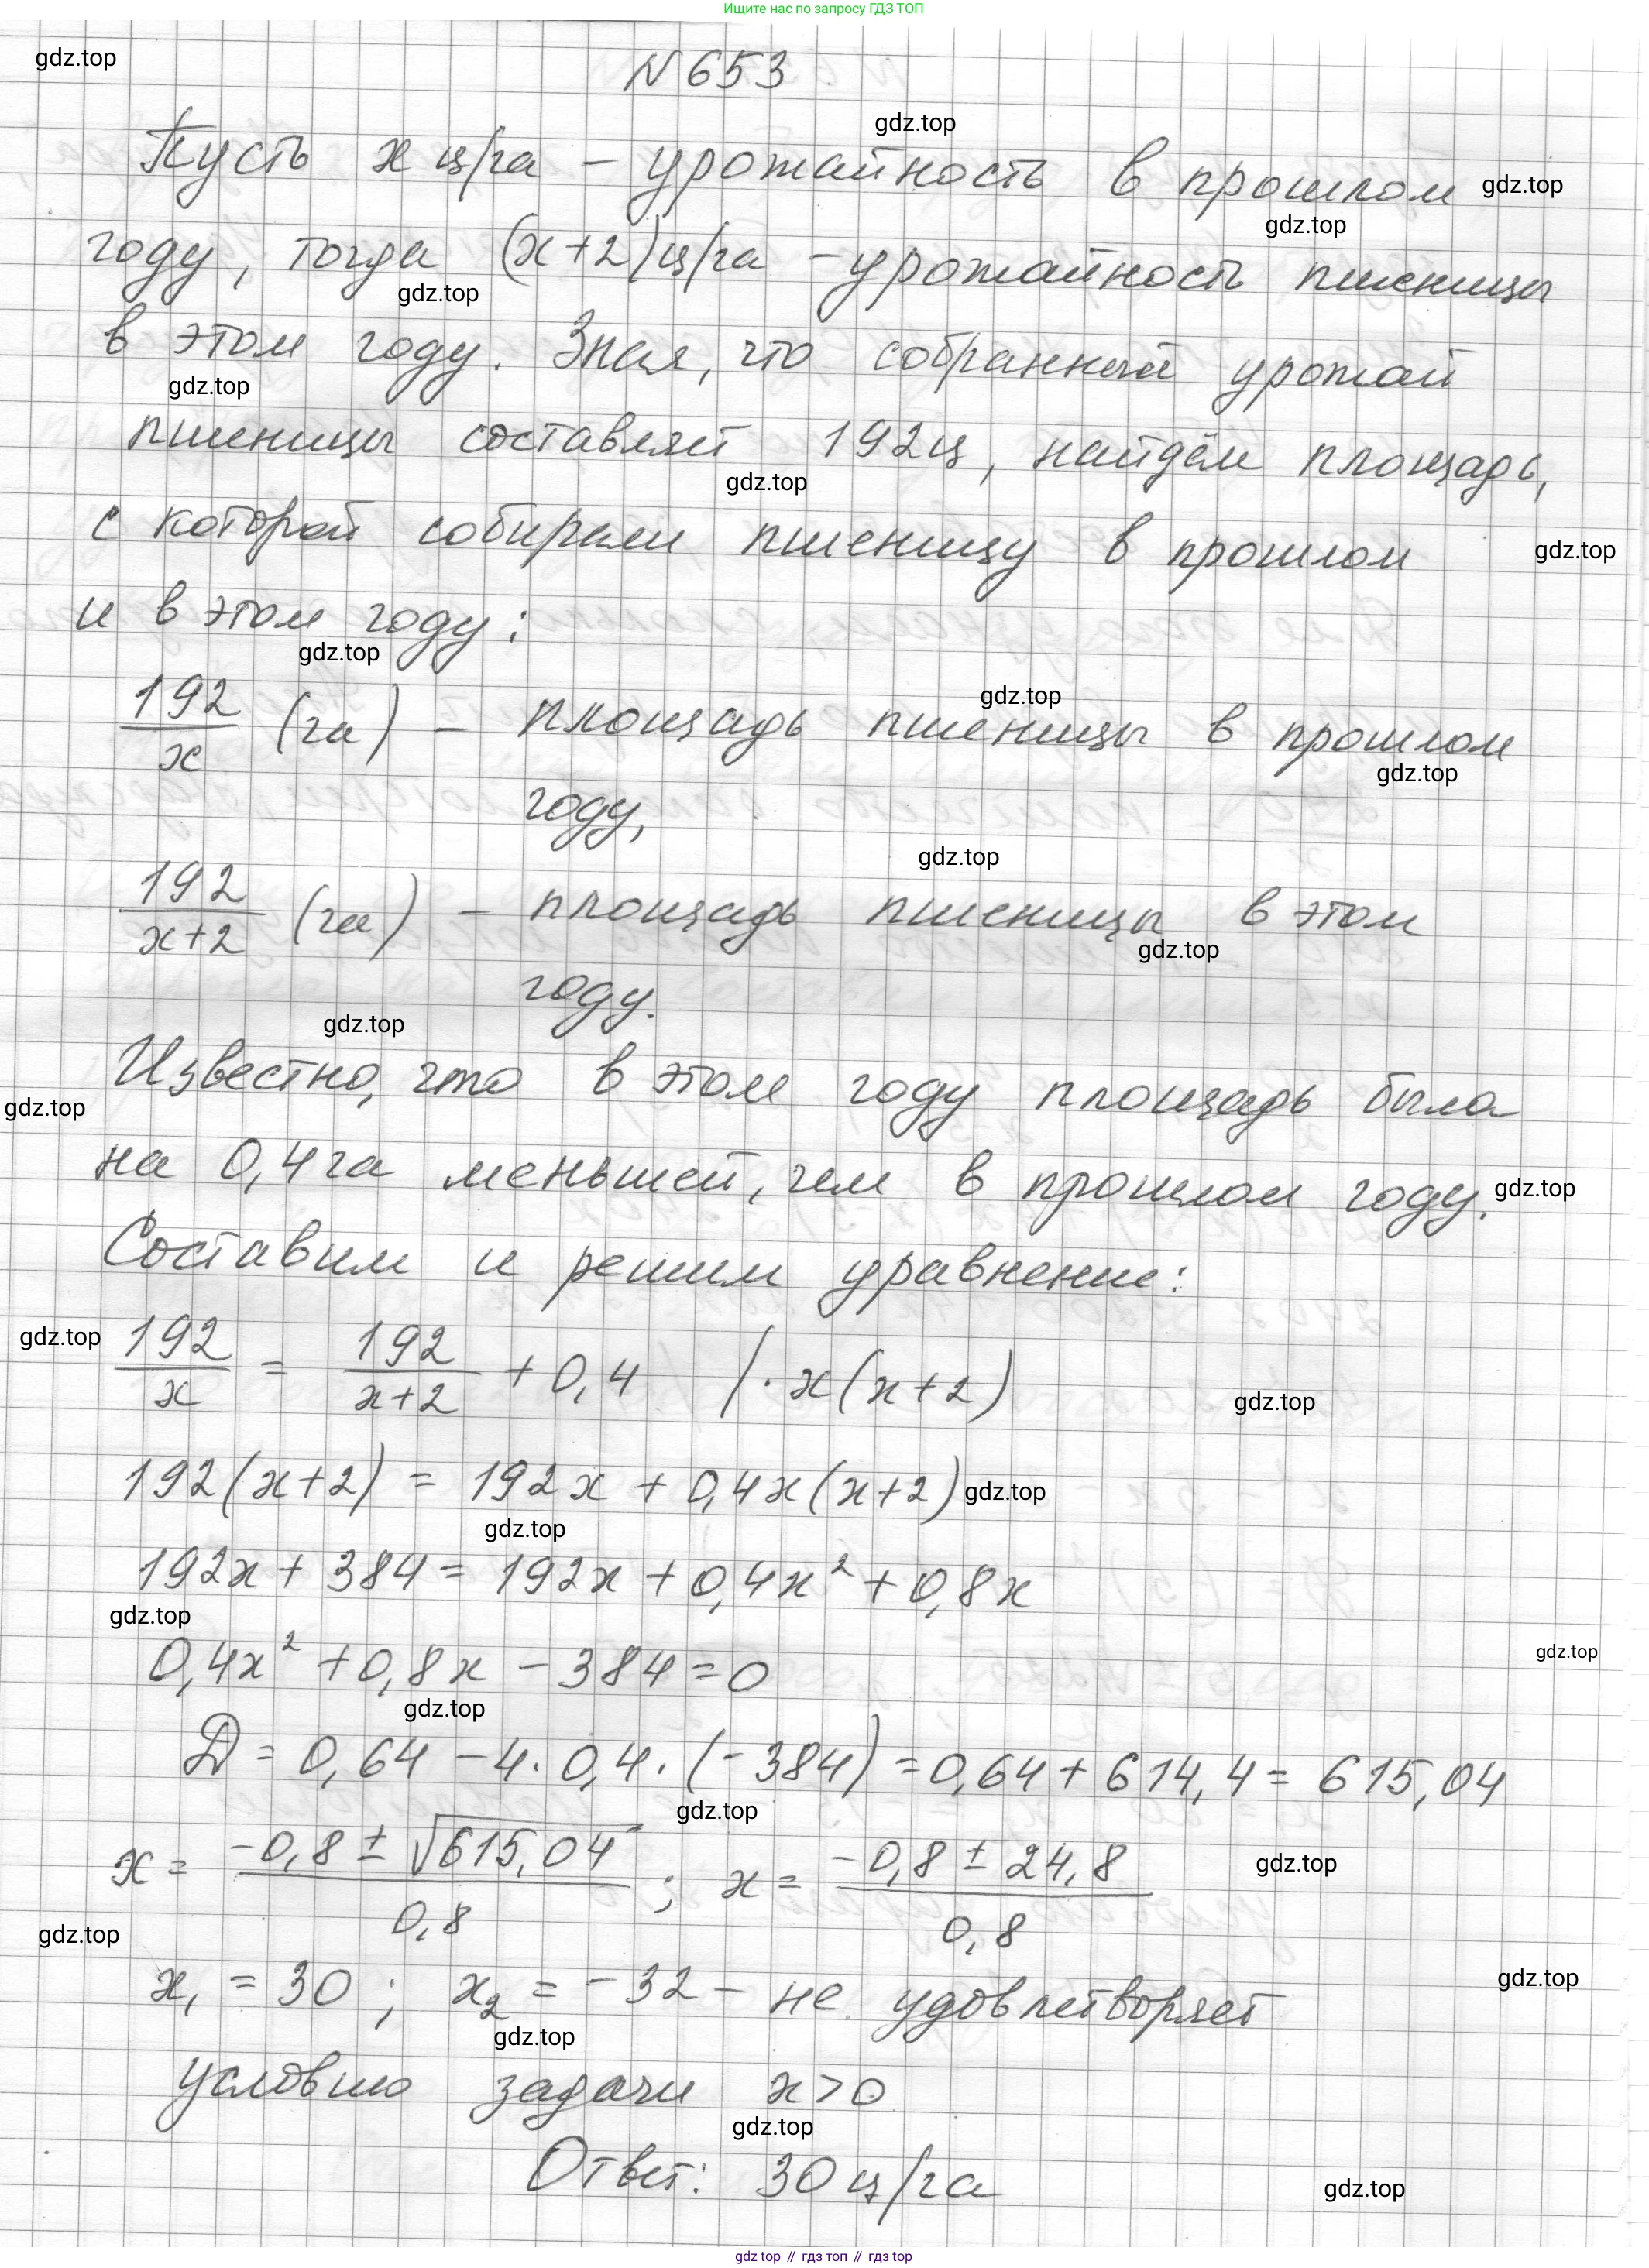 Ищите нас по запросу ГДЗ ТОП
gdz.top
N 653
gdz.top
Пусть x ц/га – урожайность в прошлом gdz.top
gdz.top
году, тогда (x+2)ц/га – урожайность пшеницы
gdz.top
в этом году. Зная, что собранный урожай
gdz.top
пшеницы составляет 192ц, найдём площадь,
gdz.top
с которой собирали пшеницу в прошлом gdz.top
и в этом году:
gdz.top
192/x (га) – площадь пшеницы в прошлом
gdz.top
gdz.top
году,
gdz.top
192/(x+2) (га) – площадь пшеницы в этом
gdz.top
году.
gdz.top
Известно, что в этом году площадь была
gdz.top
на 0,4га меньшей, чем в прошлом году. gdz.top
Составим и решим уравнение:
gdz.top
192/x = 192/(x+2) + 0,4 | · x(x+2)
gdz.top
192(x+2) = 192x + 0,4x(x+2) gdz.top
gdz.top
192x + 384 = 192x + 0,4x² + 0,8x
gdz.top
gdz.top
0,4x² + 0,8x – 384 = 0
gdz.top
D = 0,64 – 4 · 0,4 · (-384) = 0,64 + 614,4 = 615,04
gdz.top
x = (-0,8 ± √615,04)/0,8 ; x = (-0,8 ± 24,8)/0,8
gdz.top
gdz.top
x₁ = 30 ; x₂ = -32 – не удовлетворяет
gdz.top
gdz.top
условию задачи x>0
gdz.top
Ответ: 30 ц/га
gdz.top
gdz.top // гдз топ // gdz.top